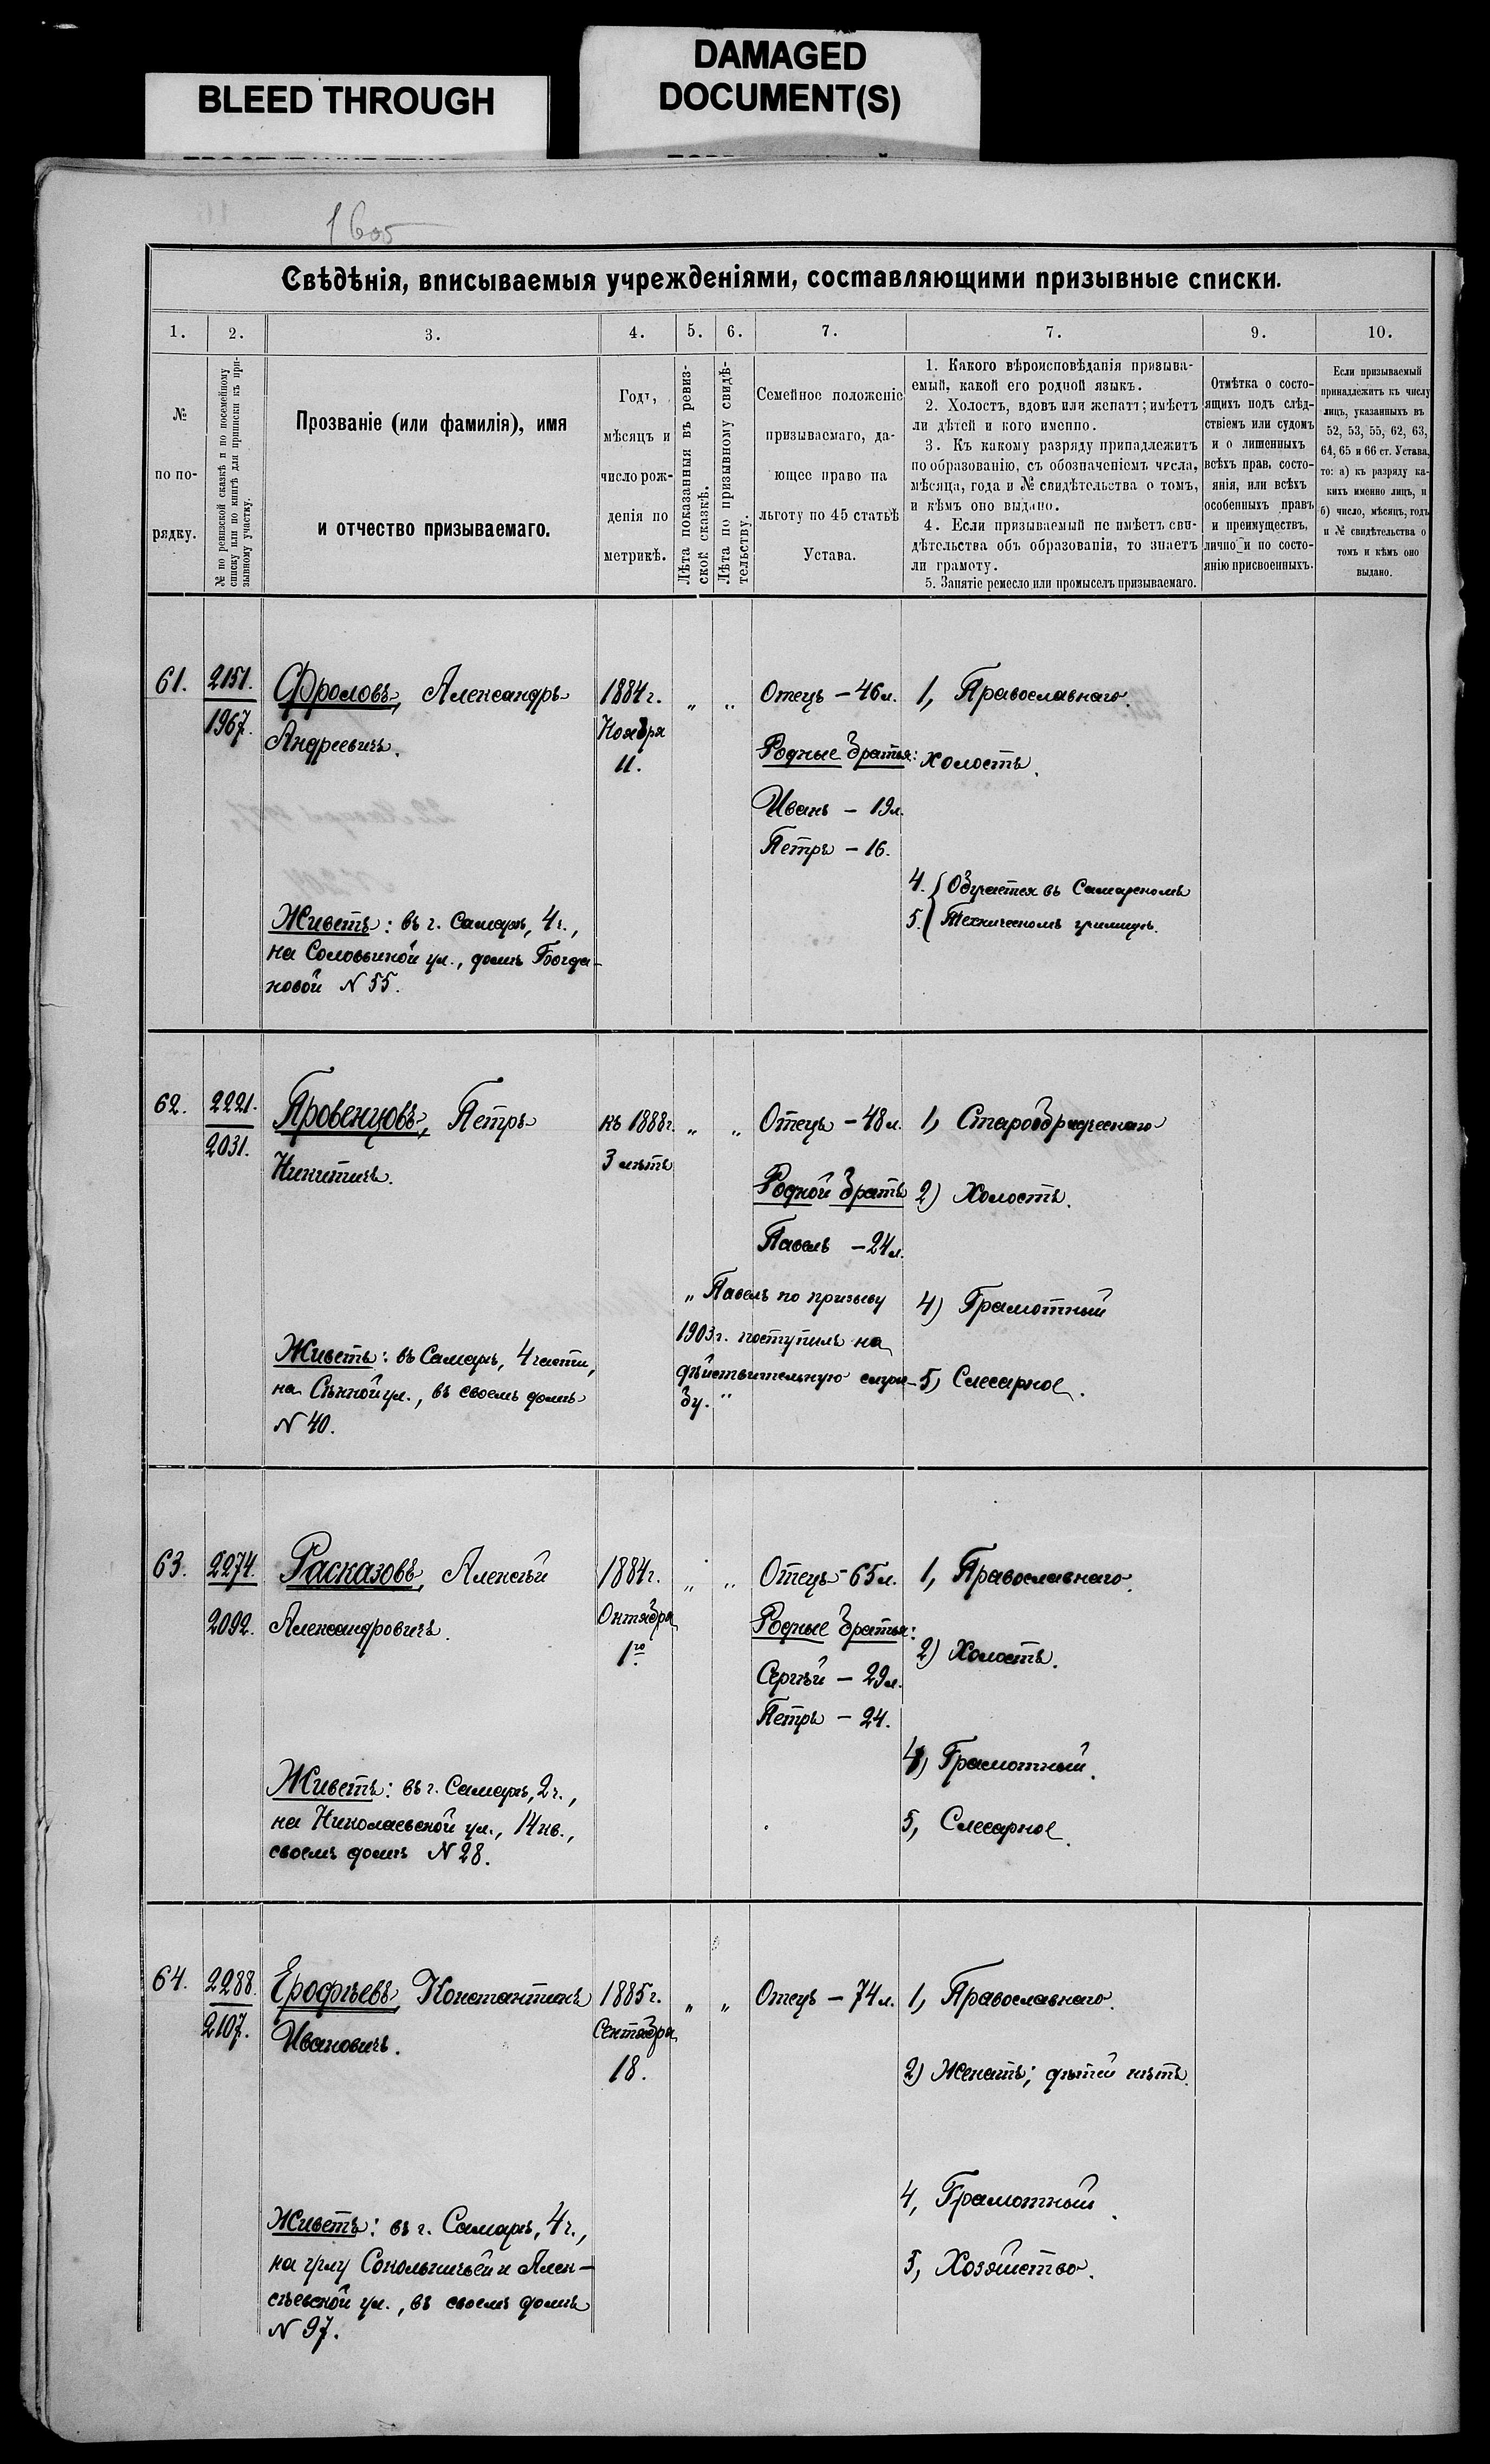 BLEED THROUGH
DAMAGED
DOCUMENT(S)
Свѣдѣнія, вписываемыя учрежденіями, составляющими призывные списки.
1.
2.
3.
4.
5.
6.
7.
7.
9.
10.
№
по по-
рядку.
№ по ревизской сказкѣ и по посемейному
списку или по книгѣ для приписки къ при-
зывному участку.
Прозваніе (или фамилія), имя
и отчество призываемаго.
Годъ,
мѣсяцъ и
число рож-
денія по
метрикѣ.
Лѣта показанныя въ ревиз-
ской сказкѣ.
Лѣта по призывному свидѣ-
тельству.
Семейное положеніе
призываемаго, да-
ющее право на
льготу по 45 статьѣ
Устава.
1. Какого вѣроисповѣданія призыва-
емый, какой его родной языкъ.
2. Холостъ, вдовъ или женатъ; имѣетъ
ли дѣтей и кого именно.
3. Къ какому разряду принадлежитъ
по образованію, съ обозначеніемъ числа,
мѣсяца, года и № свидѣтельства о томъ,
и кѣмъ оно выдано.
4. Если призываемый не имѣетъ сви-
дѣтельства объ образованіи, то знаетъ
ли грамоту.
5. Занятіе ремесло или промыселъ призываемаго.
Отмѣтка о состо-
ящихъ подъ слѣд-
ствіемъ или судомъ
и о лишенныхъ
всѣхъ прав, состо-
янія, или всѣхъ
особенныхъ правъ
и преимуществъ,
лично и по состо-
янію присвоенныхъ.
Если призываемый
принадлежитъ къ числу
лицъ, указанныхъ въ
52, 53, 55, 62, 63,
64, 65 и 66 ст. Устава,
то: а) къ разряду ка-
кихъ именно лицъ, и
б) число, мѣсяцъ, годъ
и № свидѣтельства о
томъ и кѣмъ оно
выдано.
61.
2151.
1967.
Фроловъ, Александръ
Андреевичъ.
Живетъ: въ г. Самарѣ, 4 ч.,
на Соловьиной ул., домъ Богда-
новой N 55.
1884 г.
Ноября
11.
„ „
Отецъ – 46 л.
Родные братья:
Иванъ – 19 л.
Петръ – 16.
1, Православнаго.
холостъ.
4. { Обучается въ Самарскомъ
5. { Техническомъ училищѣ.
62.
2221.
2031.
Провенцовъ, Петръ
Никитичъ.
Живетъ: въ Самарѣ, 4 части,
на Сѣнной ул., въ своемъ домѣ
N 40.
къ 1888 г.
3 лѣтъ
„ „
Отецъ – 48 л.
Родной братъ
Павелъ – 24 л.
„ Павелъ по призыву
1903 г. поступилъ на
дѣйствительную служ-
бу. “
1, Старообрядческаго
2) Холостъ.
4) Грамотный
5) Слесарное.
63.
2274.
2092.
Расказовъ, Алексѣй
Александровичъ.
Живетъ: въ г. Самарѣ, 2 ч.,
на Николаевской ул., 14 кв.,
своемъ домѣ N 28.
1884 г.
Октября
1го
„ „
Отецъ – 65 л.
Родные братья:
Сергѣй – 29 л.
Петръ – 24.
1, Православнаго.
2) Холостъ.
4) Грамотный.
5, Слесарное.
64.
2288.
2107.
Ерофѣевъ, Константинъ
Ивановичъ.
Живетъ: въ г. Самарѣ, 4 ч.,
на углу Сокольничьей и Алек-
сѣевской ул., въ своемъ домѣ
N 97.
1885 г.
Сентября
18.
„ „
Отецъ – 74 л.
1, Православнаго.
2) Женатъ; дѣтей нѣтъ.
4, Грамотный.
5, Хозяйство.